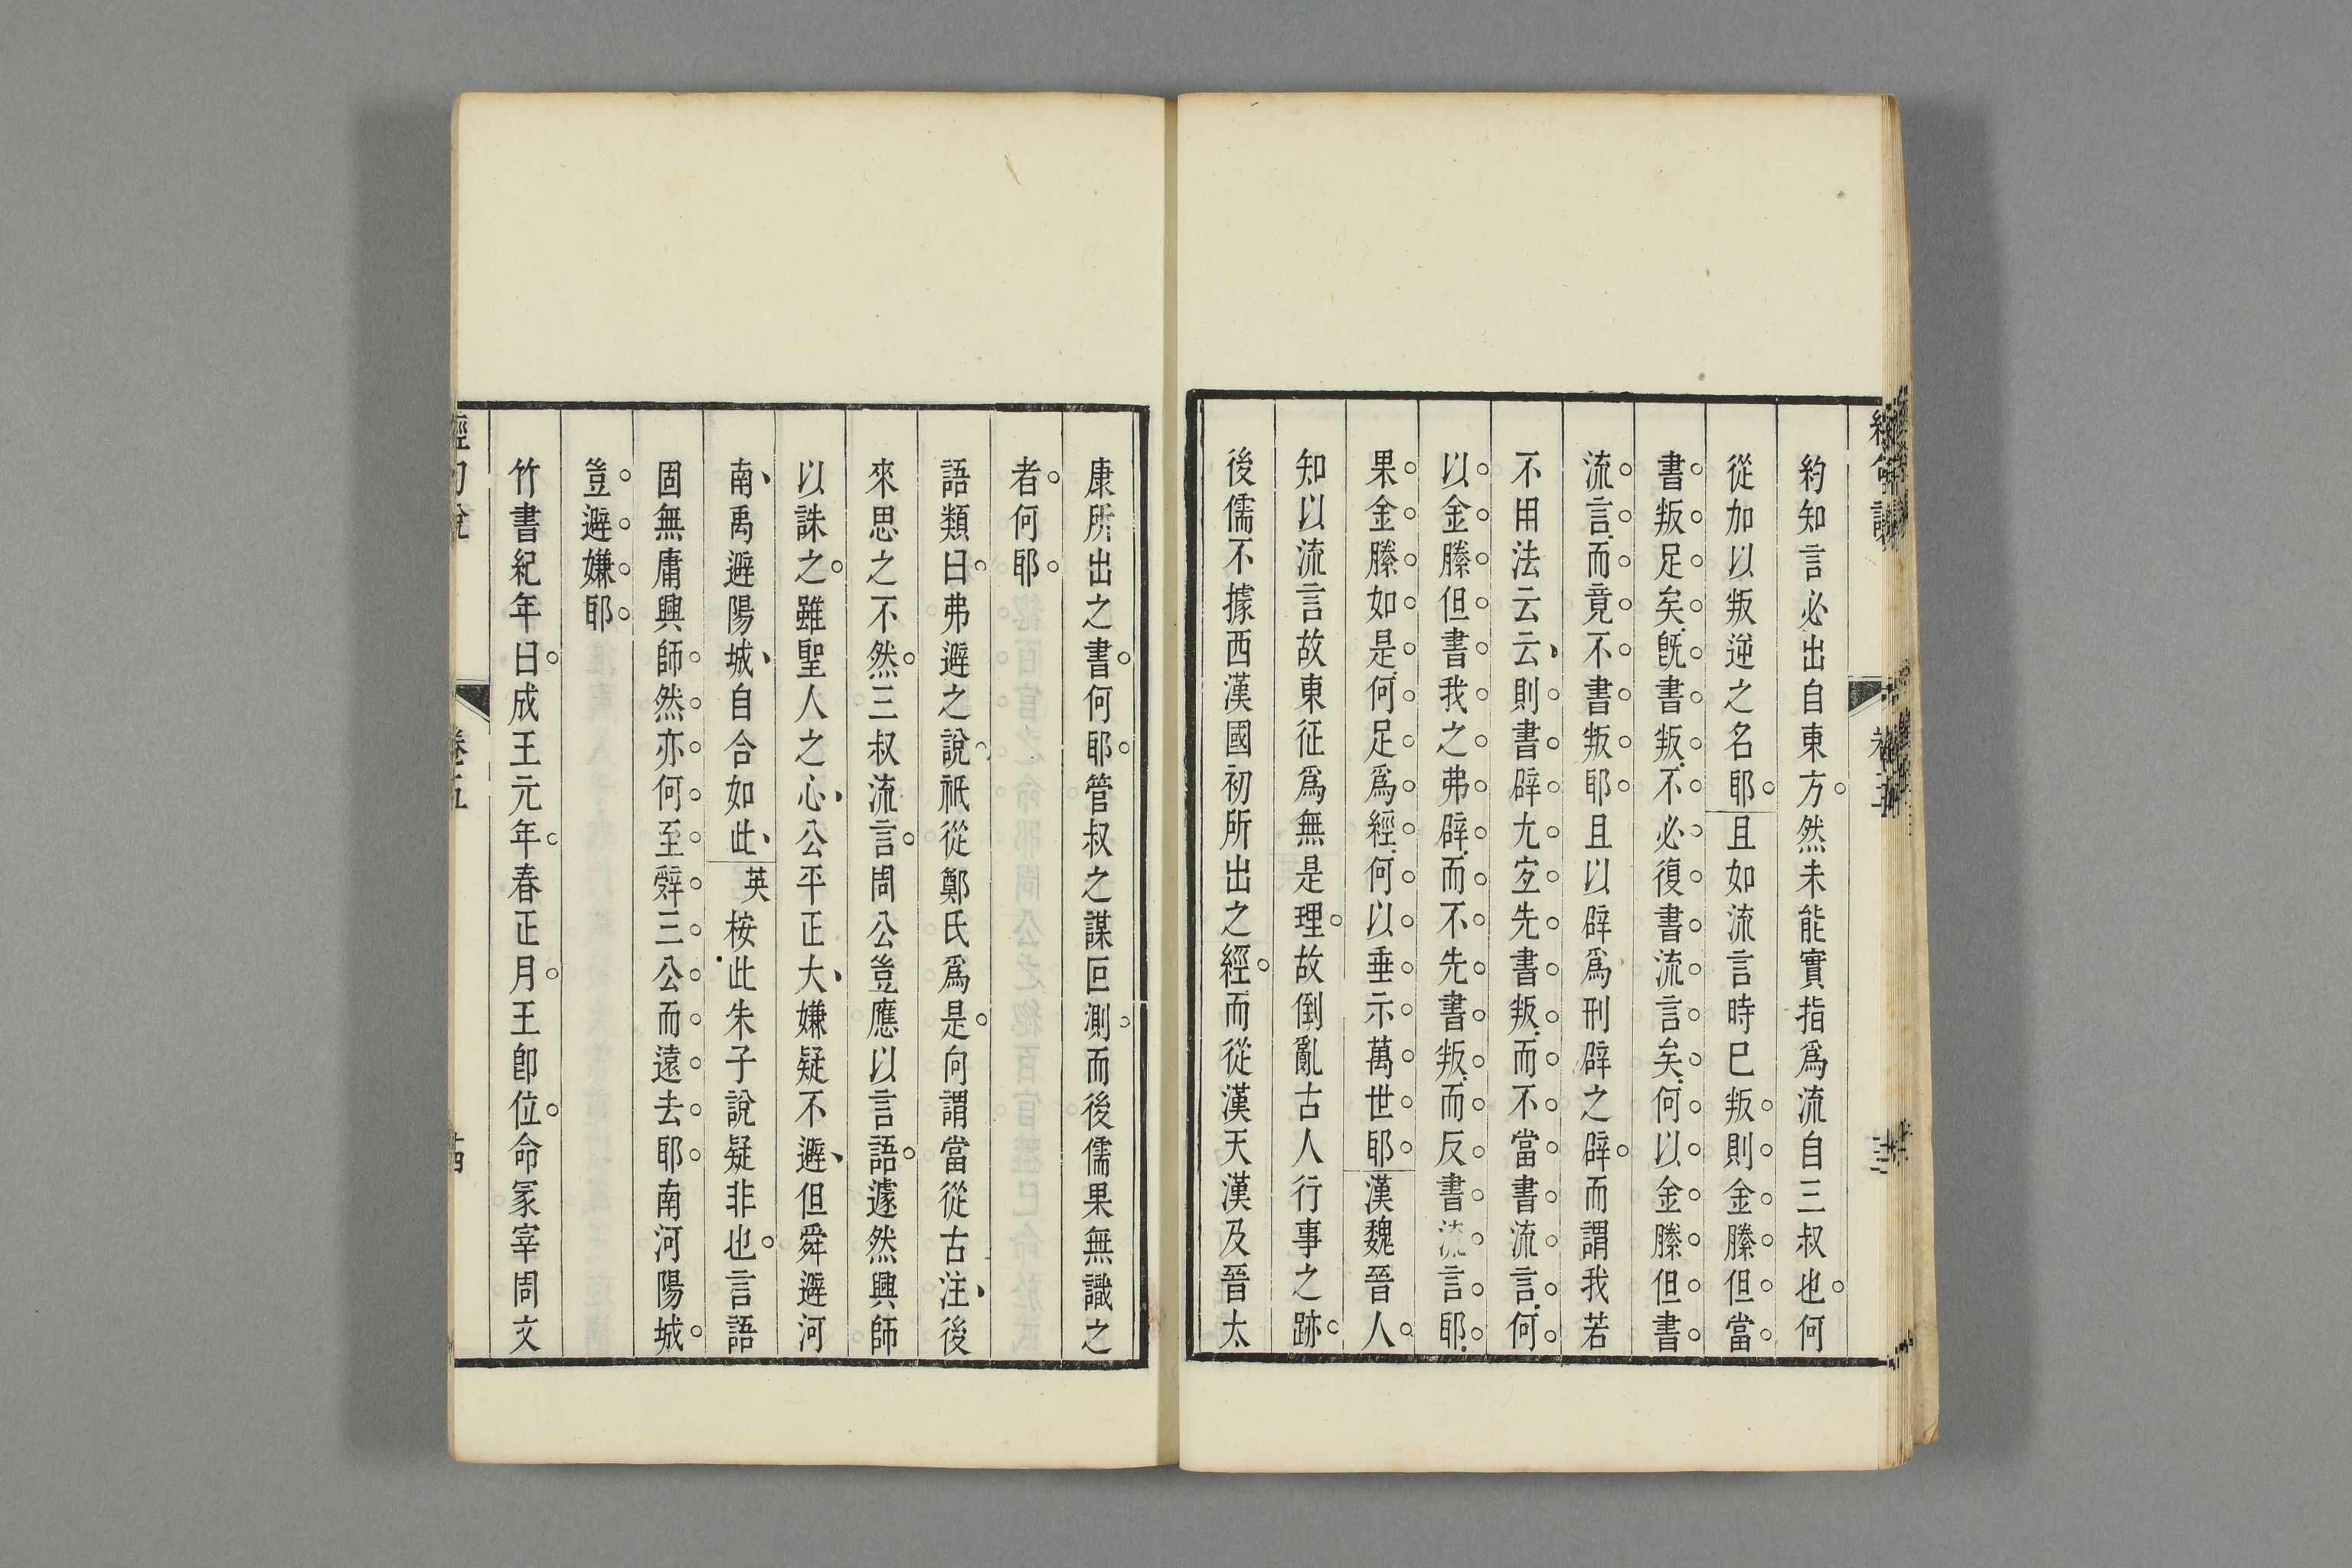 約知言必出自東方。然未能實指爲流自三叔也。何
從加以叛逆之名耶。且如流言時已叛。則金縢但當
書叛足矣。旣書叛。不必復書流言矣。何以金縢但書
流言。而竟不書叛耶。且以辟爲刑辟之辟。而謂我若
不用法云云、則書辟尤宐先書叛。而不當書流言。何
以金縢但書我之弗辟。而不先書叛。而反書流言耶。
果金縢如是。何足爲經。何以垂示萬世耶。漢魏晉人。
知以流言故東征爲無是理。故倒亂古人行事之跡。
後儒不據西漢國初所出之經。而從漢天漢及晉太
康所出之書。何耶。管叔之謀叵測。而後儒果無識之
者。何耶。
語類曰。弗避之說。祇從鄭氏爲是。向謂當從古注、後
來思之不然。三叔流言。周公豈應以言語。遽然興師
以誅之。雖聖人之心、公平正大、嫌疑不避、但舜避河
南、禹避陽城、自合如此、英桉此朱子說疑非也。言語
固無庸興師。然亦何至辤三公而遠去耶。南河陽城。
豈避嫌耶。
竹書紀年曰。成王元年。春正月。王卽位。命冢宰周文
卷五